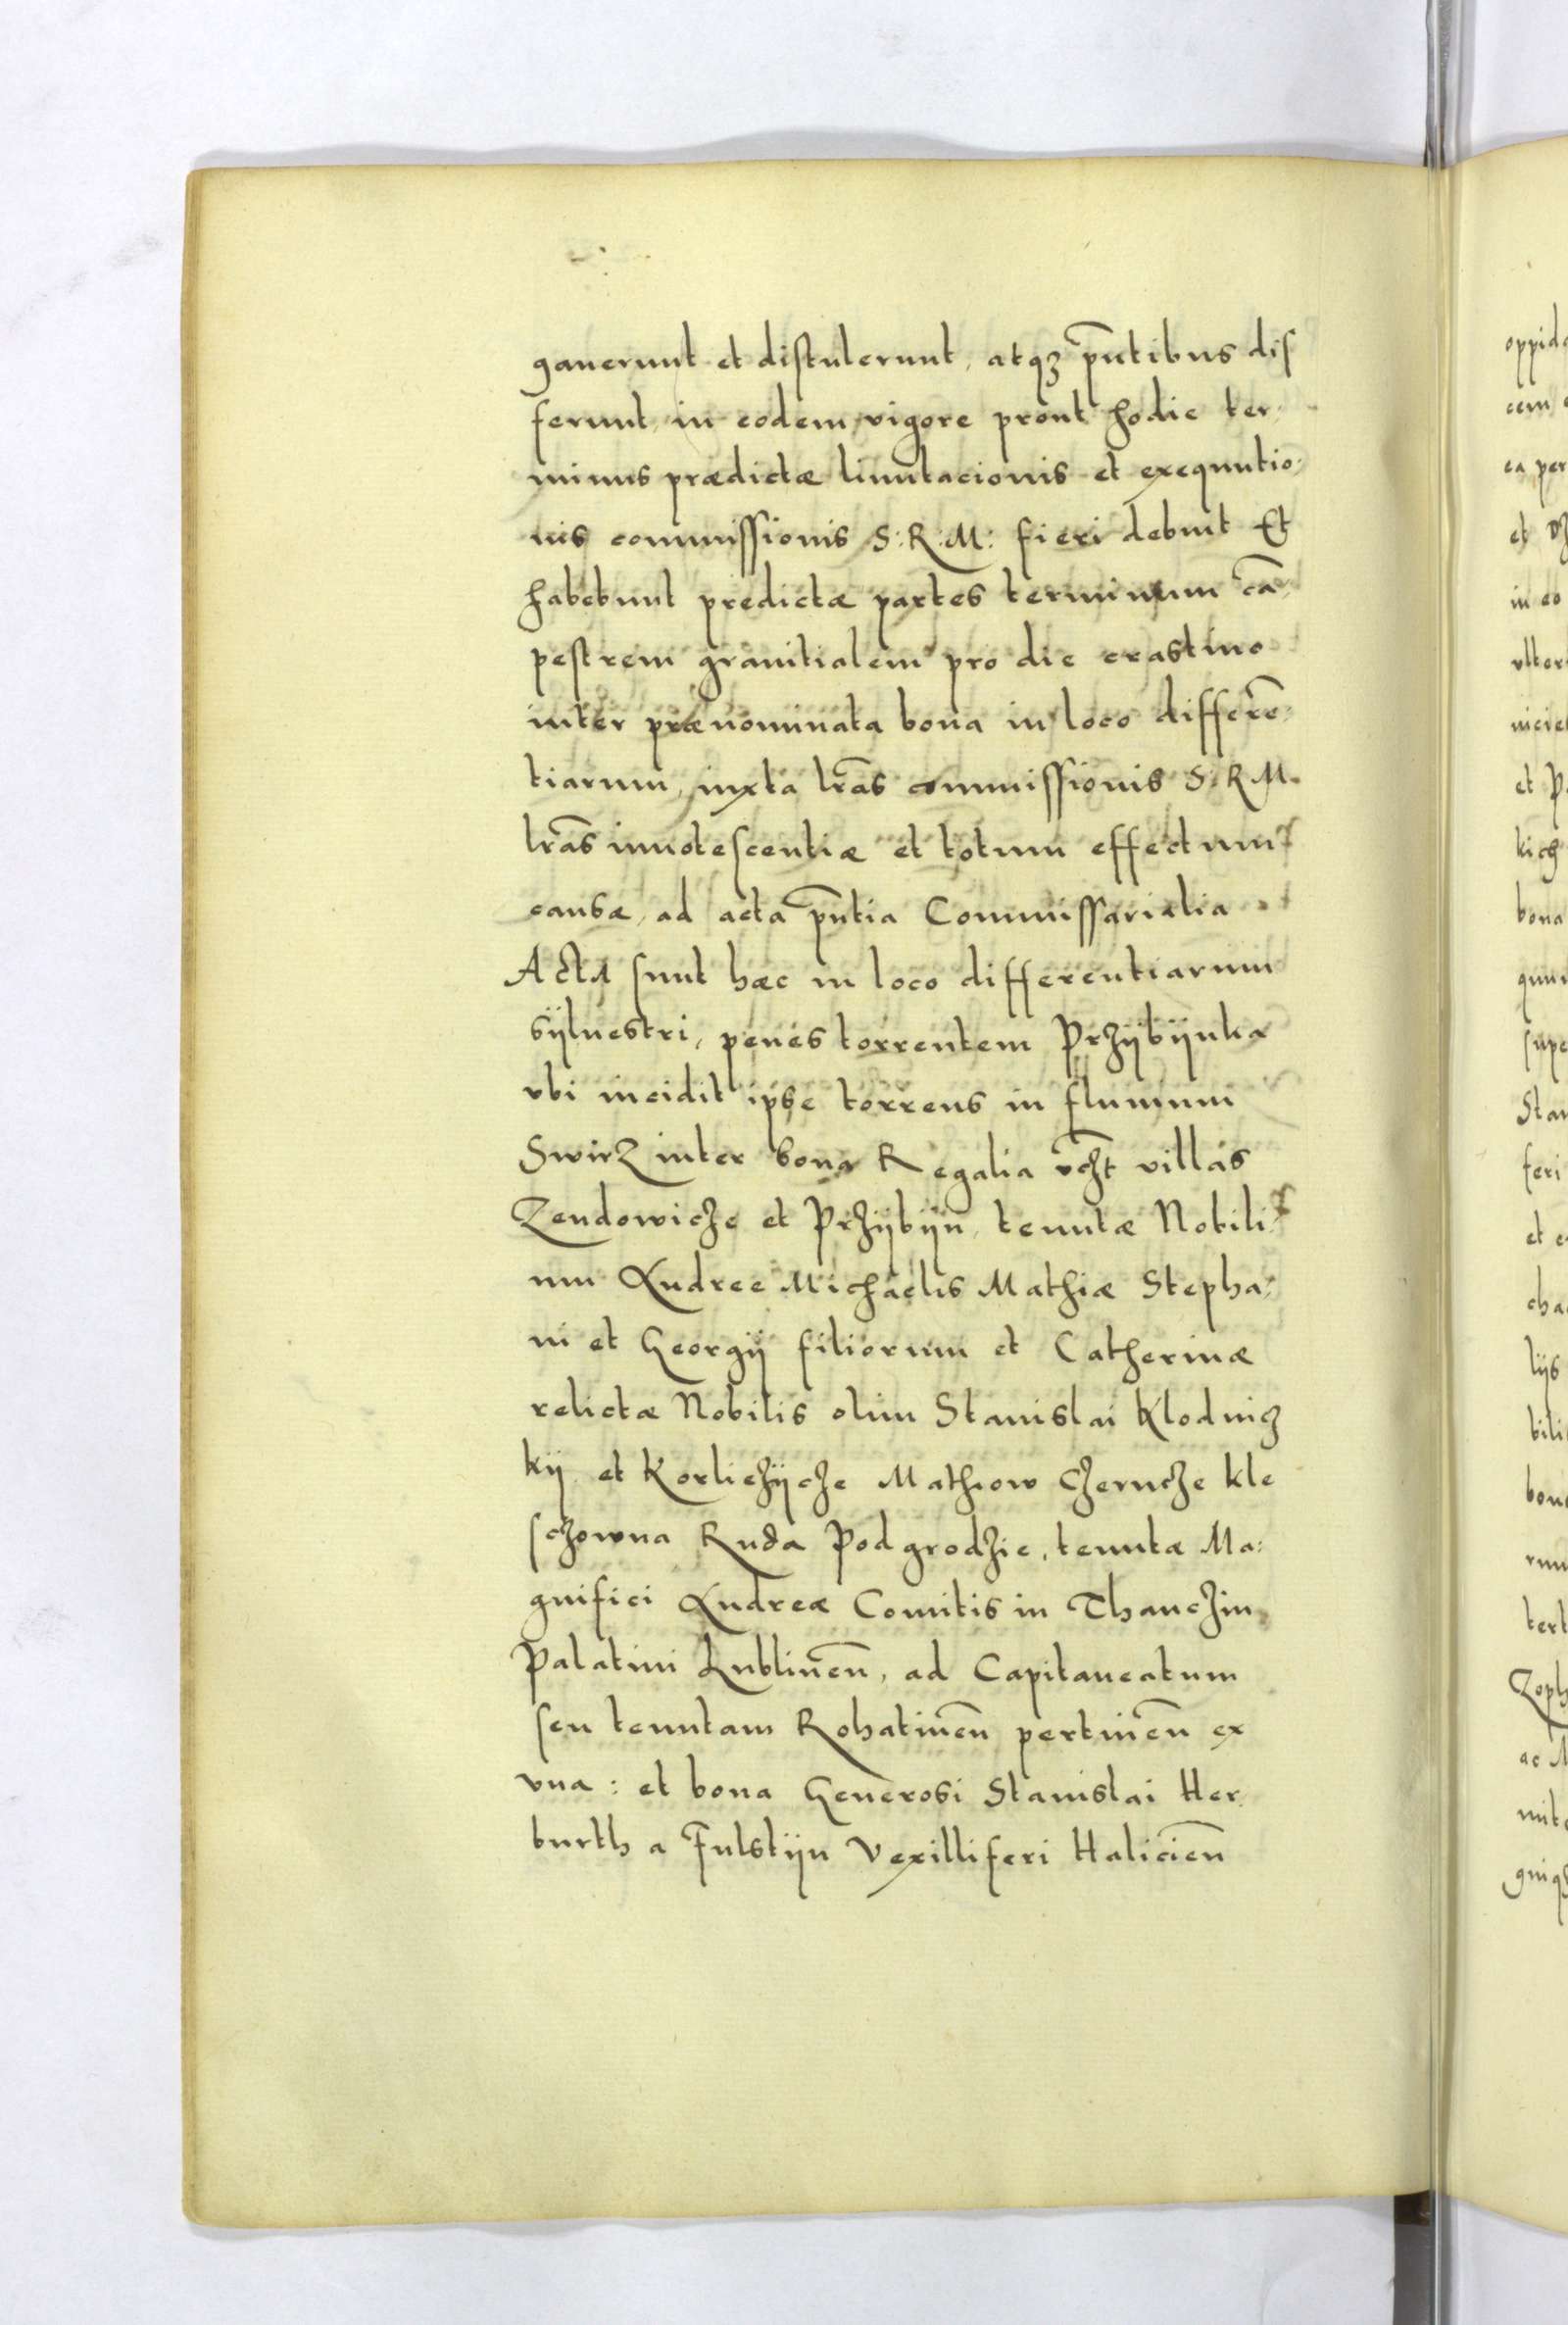 gauerunt et distulerunt, atqꝫ pn̄tibus dif
ferunt, in eodem vigore prout hodie ter
minus prædictæ limitacionis et exequutio
nis commissionis S: R: M: fieri debuit Et
habebunt predictæ partes terminum cā
pestrem granitialem pro die crastino
inter prænominata bona in loco differē
tiarum, iuxta lr̄as commissionis S: R M.
lr̄as innotescentiæ et totum effectum
causæ, ad acta pn̄tia Commissarialia
ActA sunt hæc in loco differentiarum
sÿluestri, penes torrentem Przÿbÿnka
vbi incidit ipse torrens in flumum
Swirz inter bona Regalia vczt villas
Zendowicze et Przÿbÿn, tenutæ Nobili
um Andree Michaelis Mathiæ Stepha:
ni et Georgÿ filiorum et Catherinæ
relictæ Nobilis olim Stanislai Klodnicz
kÿ et Korliczÿcze Mathow Czerncze kle
sczowna Ruda Podgrodzie, tenutæ Ma:
gnifici Andreæ Comitis in Thanczin
Palatini Lublinen̄, ad Capitaneatum
seu tenutam Rohatinen̄ pertinen̄ ex
vna: et bona Generosi Stanislai Her
burth a Fulstÿn Vexilliferi Halicien̄
oppid
cem
ea per
et
in eo
vlter
niciel
et P
kich
bona
quu
supe
Stan
feri
et
cha
lÿs
bili
bon
rum
tert
Zoph
ac M
mit
gniq